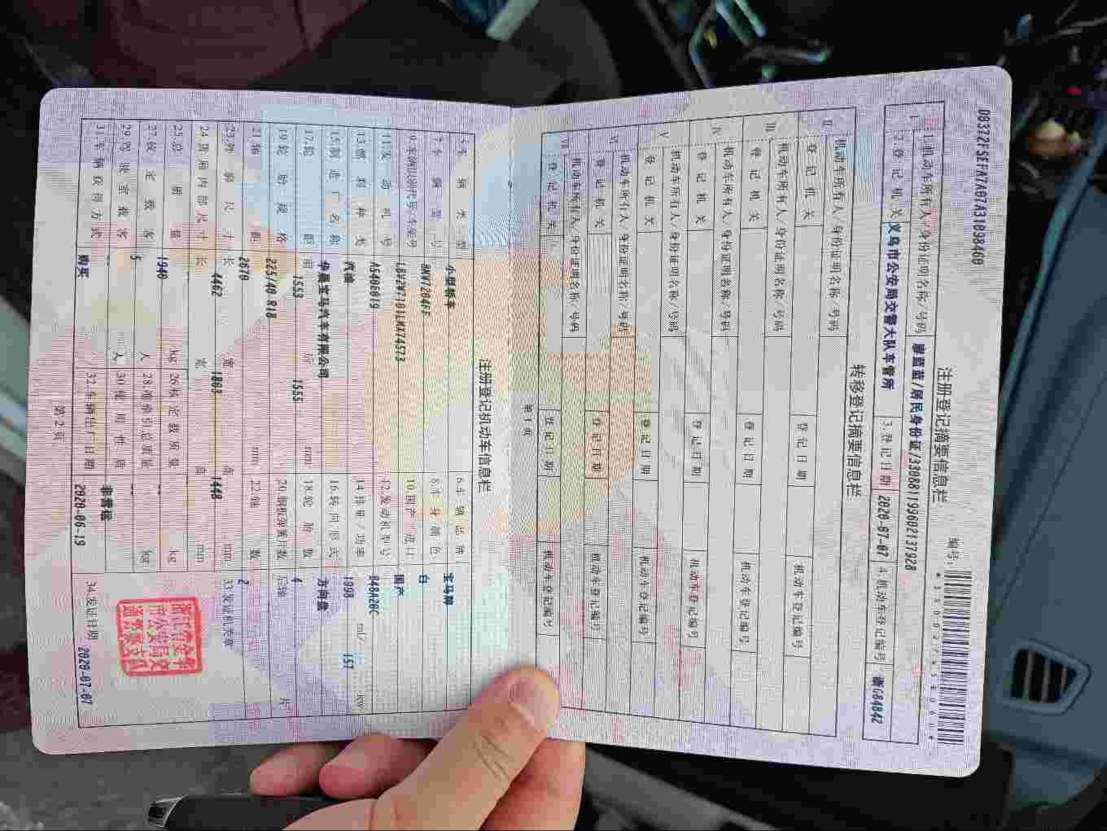 注册登记摘要信息栏
编号:
1.机动车所有人/身份证明名称/号码
居民身份证/330881199602137928
2.登记机关 义乌市公安局交警大队车管所 3.登记日期 2020-07-07 4.机动车登记编号 浙G84842
转移登记摘要信息栏
II 机动车所有人/身份证明名称/号码
登记机关 登记日期 机动车登记编号
III 机动车所有人/身份证明名称/号码
登记机关 登记日期 机动车登记编号
IV 机动车所有人/身份证明名称/号码
登记机关 登记日期 机动车登记编号
V 机动车所有人/身份证明名称/号码
登记机关 登记日期 机动车登记编号
VI 机动车所有人/身份证明名称/号码
登记机关 登记日期 机动车登记编号
VII 机动车所有人/身份证明名称/号码
登记机关 登记日期 机动车登记编号
第1页
注册登记机动车信息栏
5.车辆类型 小型轿车 6.车辆品牌 宝马牌
7.车辆型号 8.车身颜色 白
9.车辆识别代号/车架号 10.国产/进口 国产
11.发动机号 A5406019 12.发动机型号 B48A20C
13.燃料种类 汽油 14.排量/功率 1998 ml/ 157 kw
15.制造厂名称 华晨宝马汽车有限公司 16.转向形式 方向盘
17.轮距 前 1553 后 1555 mm 18.轮胎数 4
19.轮胎规格 225/40 R18 20.钢板弹簧片数 后轴 片
21.轴距 2670 mm 22.轴数 2
23.外廓尺寸 长 4462 宽 1803 高 1448 mm 33.发证机关章
24.货厢内部尺寸 长 宽 高 mm
25.总质量 1940 kg 26.核定载质量 kg
27.核定载客 5 人 28.准牵引总质量 kg
29.驾驶室载客 人 30.使用性质 非营运
31.车辆获得方式 购买 32.车辆出厂日期 2020-06-19 34.发证日期 2020-07-07
第2页